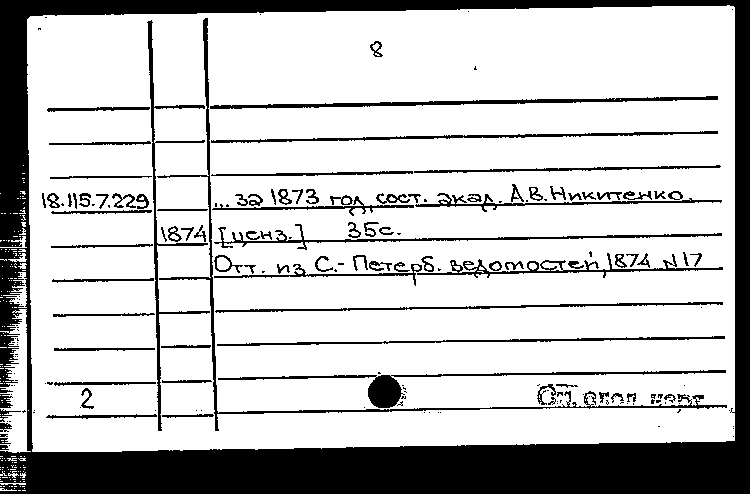 8
18.115.7.229 ... за 1873 год, сост. акад. А.В. Никитенко.
1874 [ценз.] 35с.
Отт. из С.-Петерб. ведомостей, 1874 N17
2